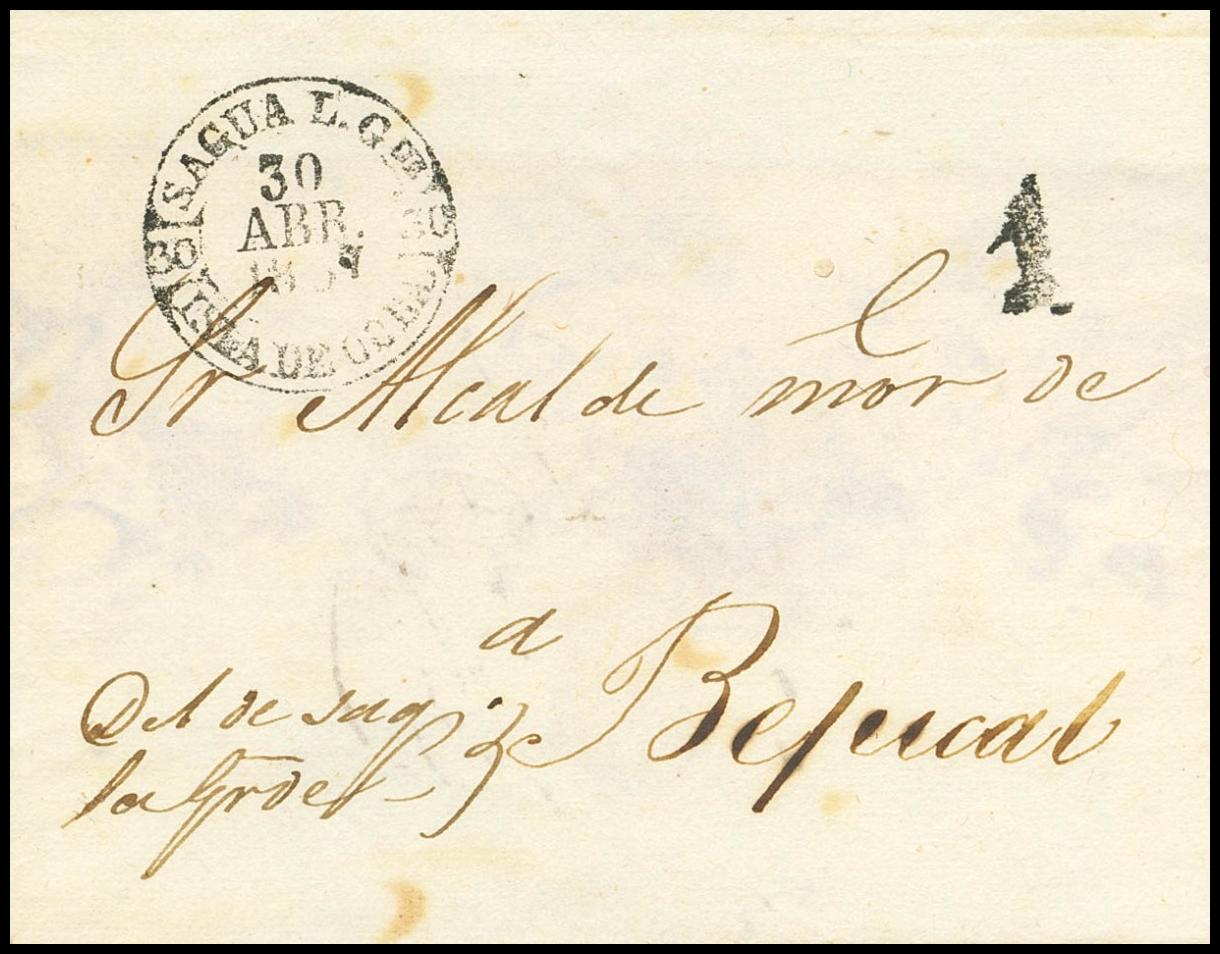 SAGUA L. G.
30
ABR.
ISLA DE CUBA.
1
Sr Alcalde mor de
a
Bejucal
Del de sag
la Grde